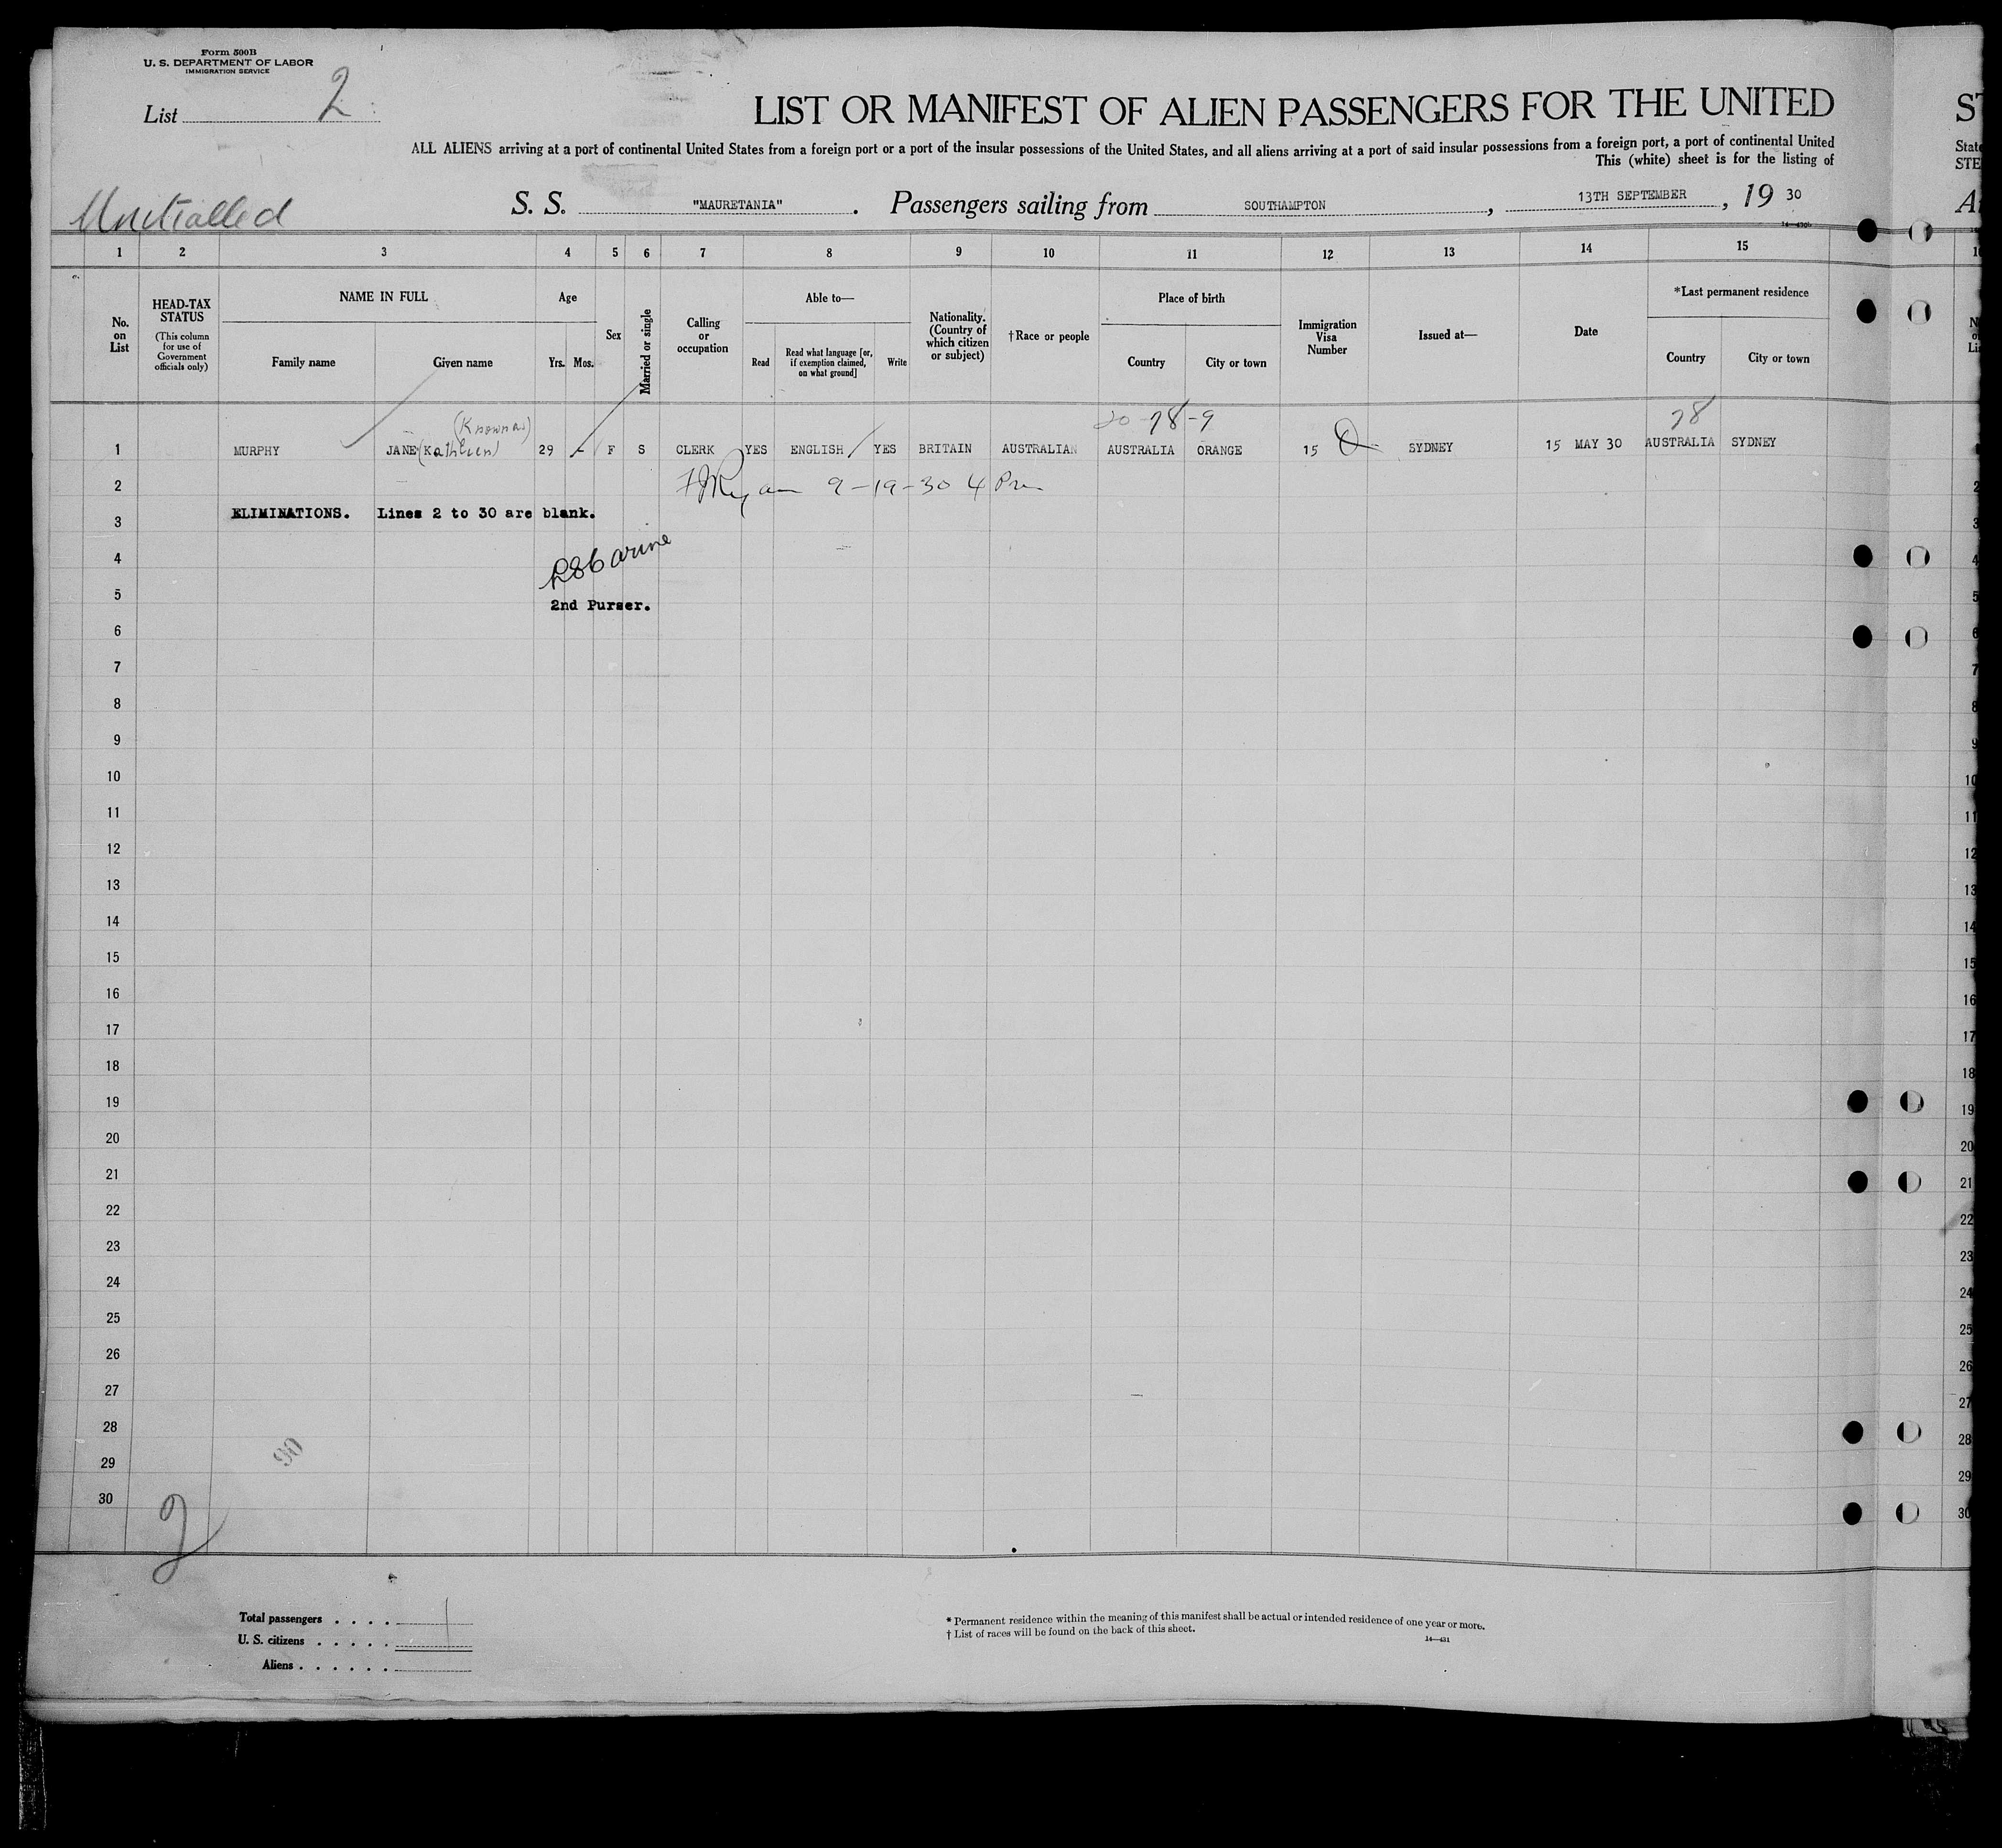 Form 500B
U. S. DEPARTMENT OF LABOR
IMMIGRATION SERVICE
List 2
LIST OR MANIFEST OF ALIEN PASSENGERS FOR THE UNITED
ST
ALL ALIENS arriving at a port of continental United States from a foreign port or a port of the insular possessions of the United States, and all aliens arriving at a port of said insular possessions from a foreign port, a port of continental United
State
This (white) sheet is for the listing of
STE
S. S. "MAURETANIA". Passengers sailing from SOUTHAMPTON, 13TH SEPTEMBER, 19 30
1 2 3 4 5 6 7 8 9 10 11 12 13 14 15
No. on List
HEAD-TAX STATUS
(This column for use of Government officials only)
NAME IN FULL
Family name Given name
Age
Yrs. Mos.
Sex
Married or single
Calling or occupation
Able to—
Read
Read what language [or, if exemption claimed, on what ground]
Write
Nationality. (Country of which citizen or subject)
†Race or people
Place of birth
Country City or town
Immigration Visa Number
Issued at—
Date
*Last permanent residence
Country City or town
(Known as) 20-78-9 78
1 MURPHY JANE (Kathleen) 29 - F S CLERK YES ENGLISH YES BRITAIN AUSTRALIAN AUSTRALIA ORANGE 15 SYDNEY 15 MAY 30 AUSTRALIA SYDNEY
2 FJRyan 9-19-30 4 Pm
3 ELIMINATIONS. Lines 2 to 30 are blank.
4
5 2nd Purser.
6
7
8
9
10
11
12
13
14
15
16
17
18
19
20
21
22
23
24
25
26
27
28
90
29
30
2
Total passengers . . . . 1
U. S. citizens . . . . .
Aliens . . . . . .
* Permanent residence within the meaning of this manifest shall be actual or intended residence of one year or more.
† List of races will be found on the back of this sheet.
14—431